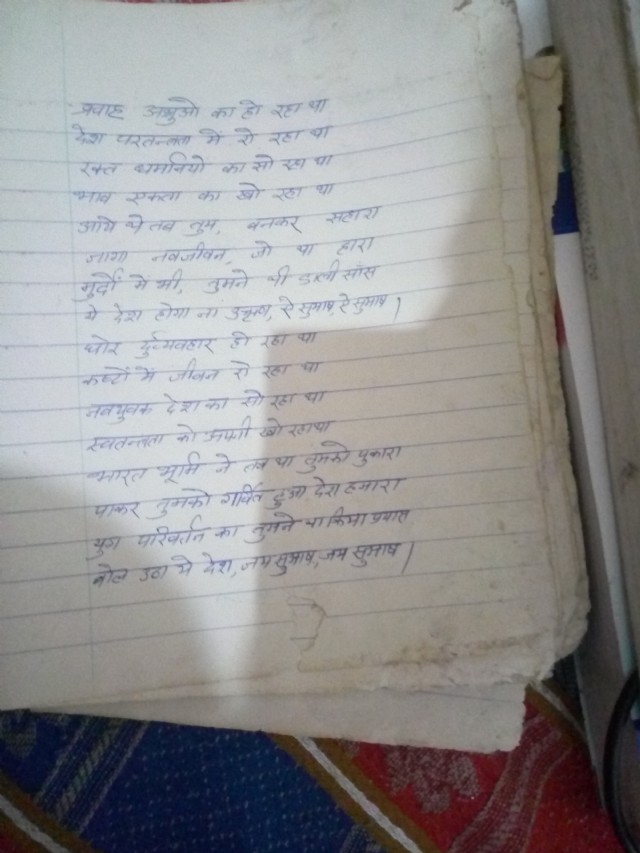 प्रवाह अश्रुओ का हो रहा था
देश परतन्त्रता में रो रहा था
रक्त धमनियो का सो रहा था
भाव एकता का खो रहा था
आये थे तब तुम, बनकर सहारा
जागा नवजीवन, जो था हारा
मुर्दो में भी, तुमने थी डाली साँस
ये देश होगा ना उऋण, ऐ सुभाष, ऐ सुभाष।
घोर दुर्व्यवहार हो रहा था
कष्टों में जीवन रो रहा था
नवयुवक देश का सो रहा था
स्वतन्त्रता को अपनी खो रहा था
भारत भूमि ने तब था तुमको पुकारा
पाकर तुमको गर्वित हुआ देश हमारा
युग परिवर्तन का तुमने था किया प्रयास
बोल उठा ये देश, जय सुभाष, जय सुभाष।